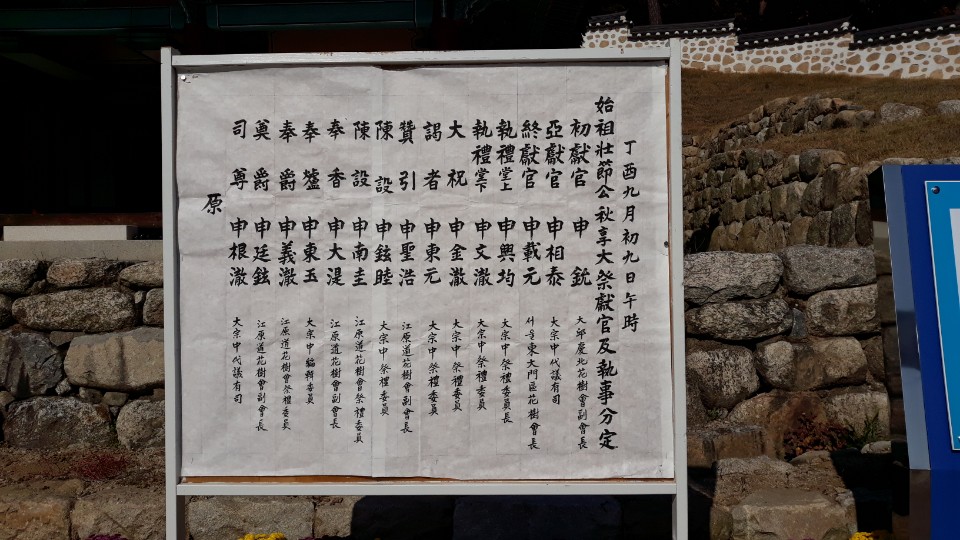 丁酉九月初九日午時
始祖壯節公秋享大祭獻官及執事分定
初獻官 申 銃 大邱慶北花樹會副會長
亞獻官 申相泰 大宗中代議有司
終獻官 申載元 서울東大門區花樹會長
執禮堂上 申興均 大宗中祭禮委員長
執禮堂下 申文澈 大宗中祭禮委員
大祝 申金澈 大宗中祭禮委員
謁者 申東元 大宗中祭禮委員
贊引 申聖浩 江原道花樹會副會長
陳設 申鉉睦 大宗中祭禮委員
陳設 申南圭 江原道花樹會祭禮委員
奉香 申大湜 江原道花樹會副會長
奉爐 申東玉 大宗中編輯委員
奉爵 申義澈 江原道花樹會祭禮委員
奠爵 申廷鉉 江原道花樹會副會長
司尊 申根澈 大宗中代議有司
原